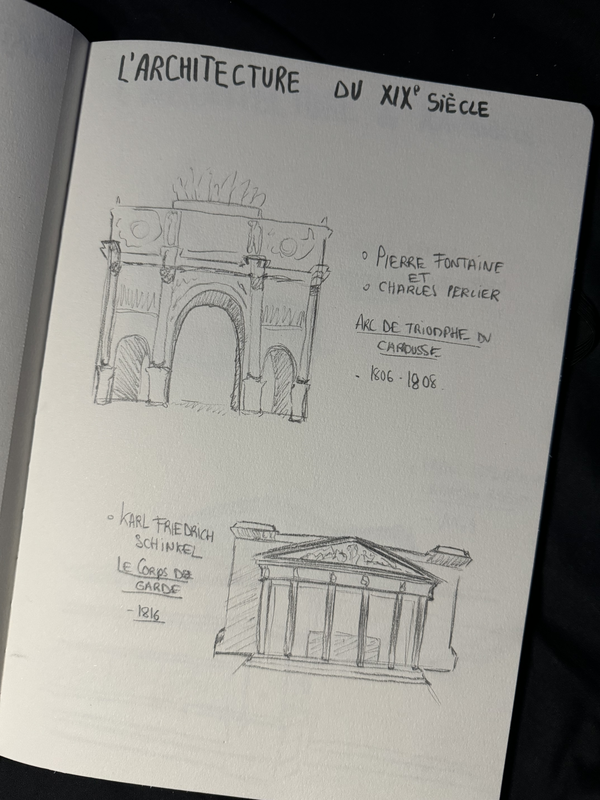 L'ARCHITECTURE DU XIXe SIÈCLE
◦ PIERRE FONTAINE
ET
◦ CHARLES PERCIER
ARC DE TRIOMPHE DU
CAROUSSE
- 1806 - 1808
◦ KARL FRIEDRICH
SCHINKEL
LE CORPS DE
GARDE
- 1816